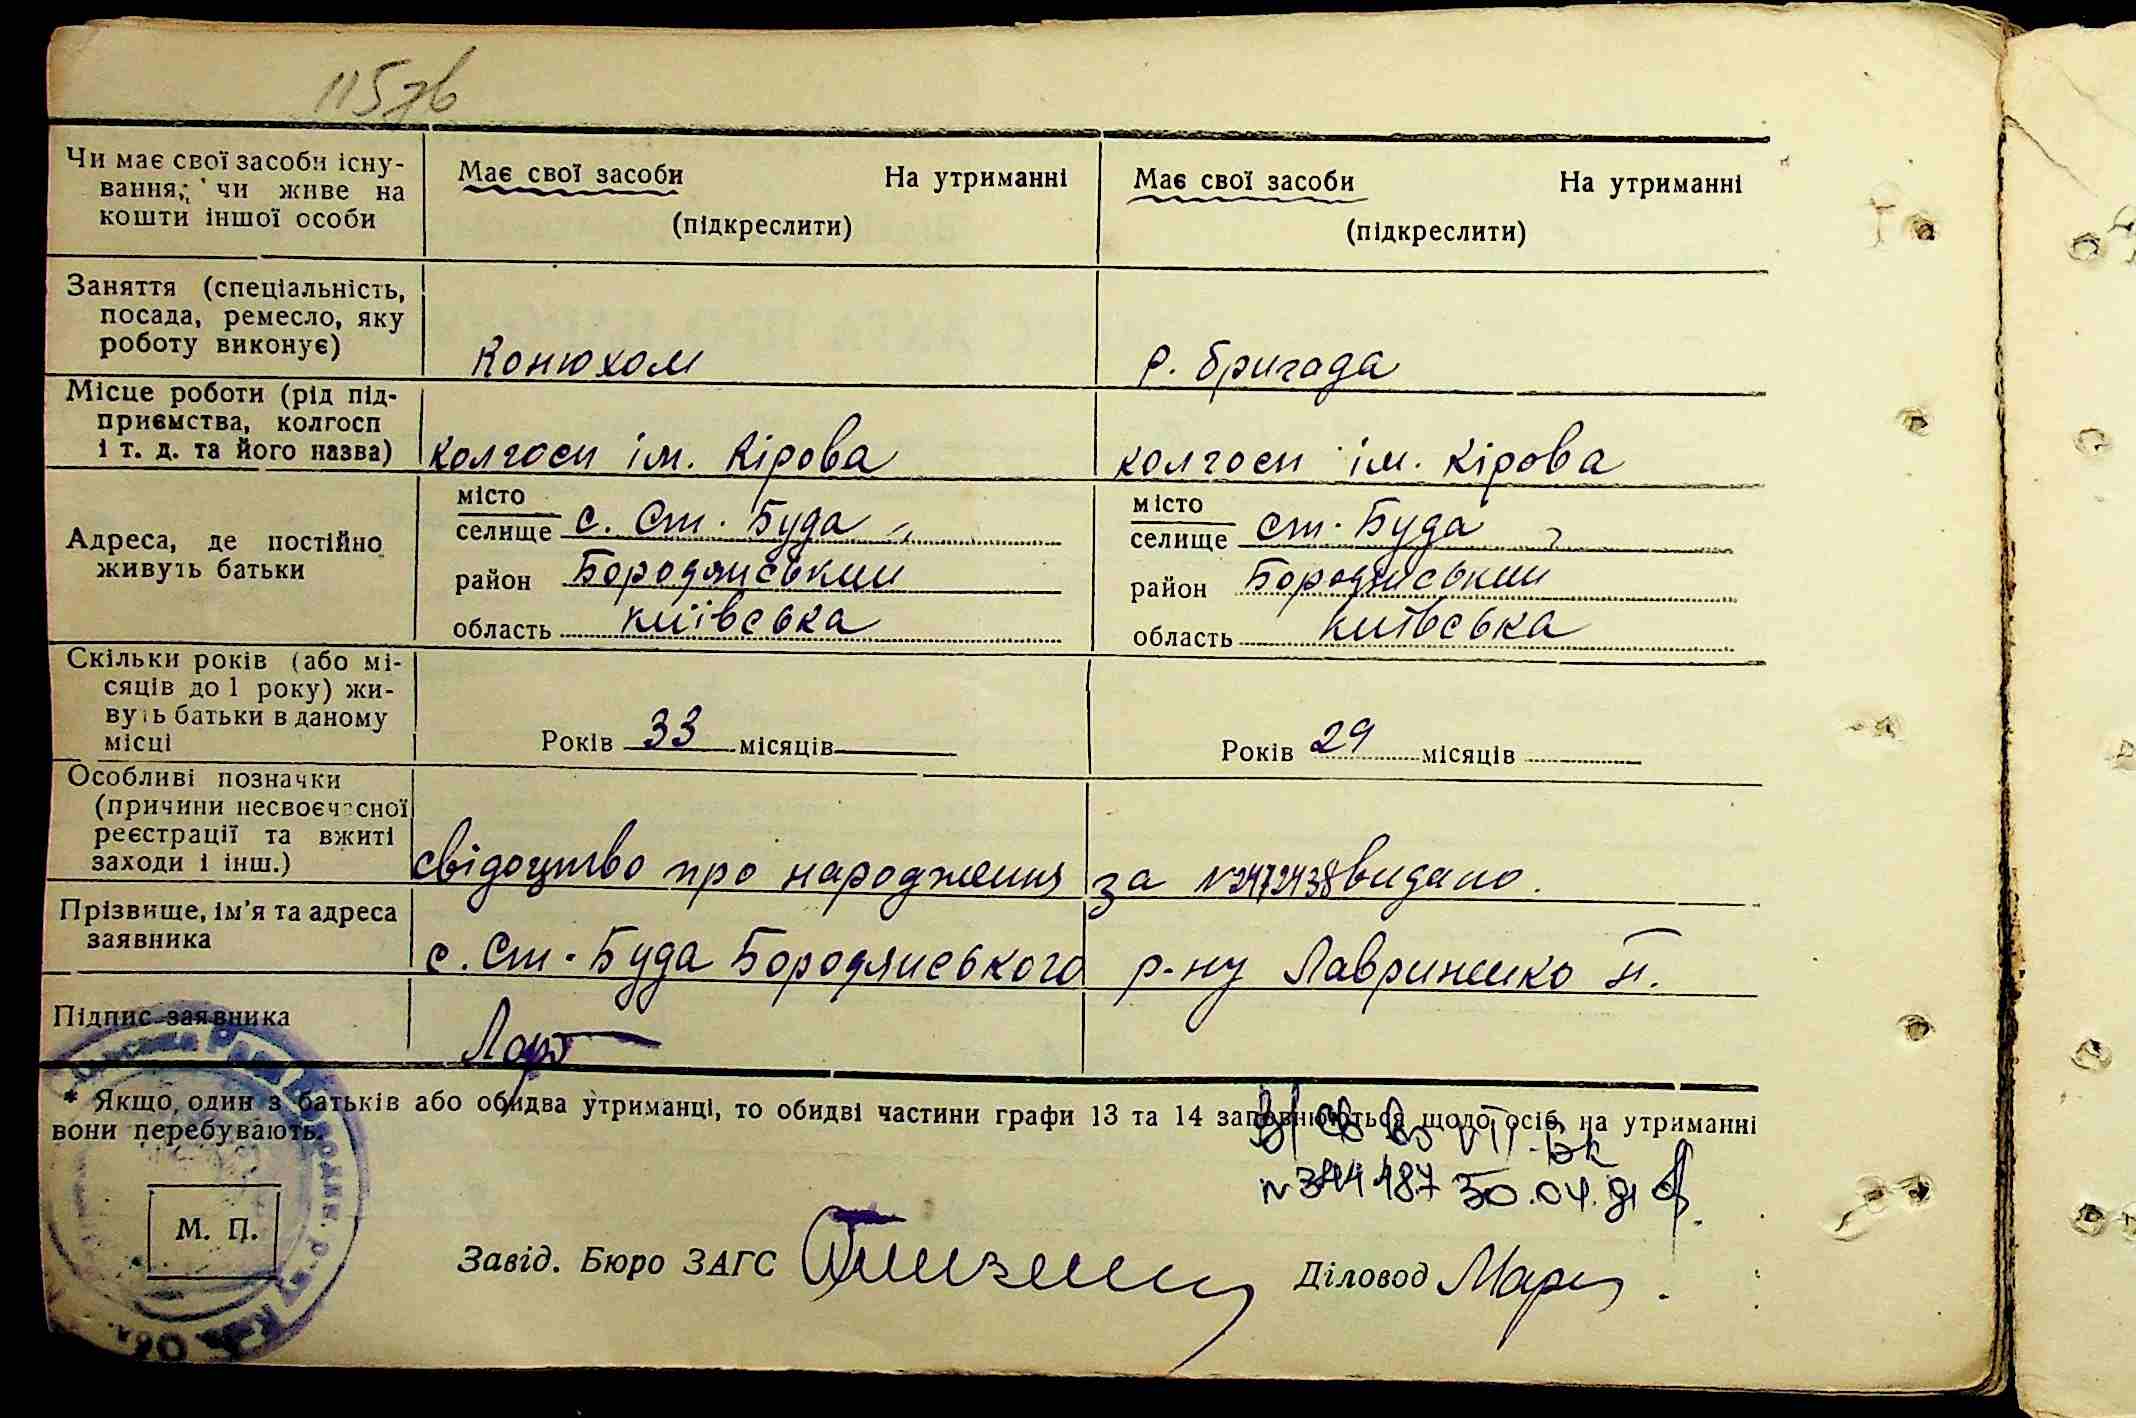 115зв
Чи має свої засоби існу-
вання, чи живе на
кошти іншої особи
Має свої засоби На утриманні
(підкреслити)
Має свої засоби На утриманні
(підкреслити)
Заняття (спеціальність,
посада, ремесло, яку
роботу виконує)
Конюхом
р. бригада
Місце роботи (рід під-
приємства, колгосп
і т. д. та його назва)
колгосп ім. Кірова
колгосп ім. Кірова
Адреса, де постійно
живуть батьки
місто
селище с. Ст. Буда
район Бородянський
область Київська
місто
селище Ст. Буда
район Бородянський
область Київська
Скільки років (або мі-
сяців до 1 року) жи-
вуть батьки в даному
місці
Років 33 місяців
Років 29 місяців
Особливі позначки
(причини несвоєчасної
реєстрації та вжиті
заходи і інш.)
свідоцтво про народження за №2472438 видано.
Прізвище, ім'я та адреса
заявника
с. Ст. Буда Бородянського р-ну Лавриненко П.
Підпис заявника
* Якщо один з батьків або обидва утриманці, то обидві частини графи 13 та 14 заповнюються щодо осіб, на утриманні
вони перебувають.
№344487 30.04.91
М. П.
Завід. Бюро ЗАГС
Діловод